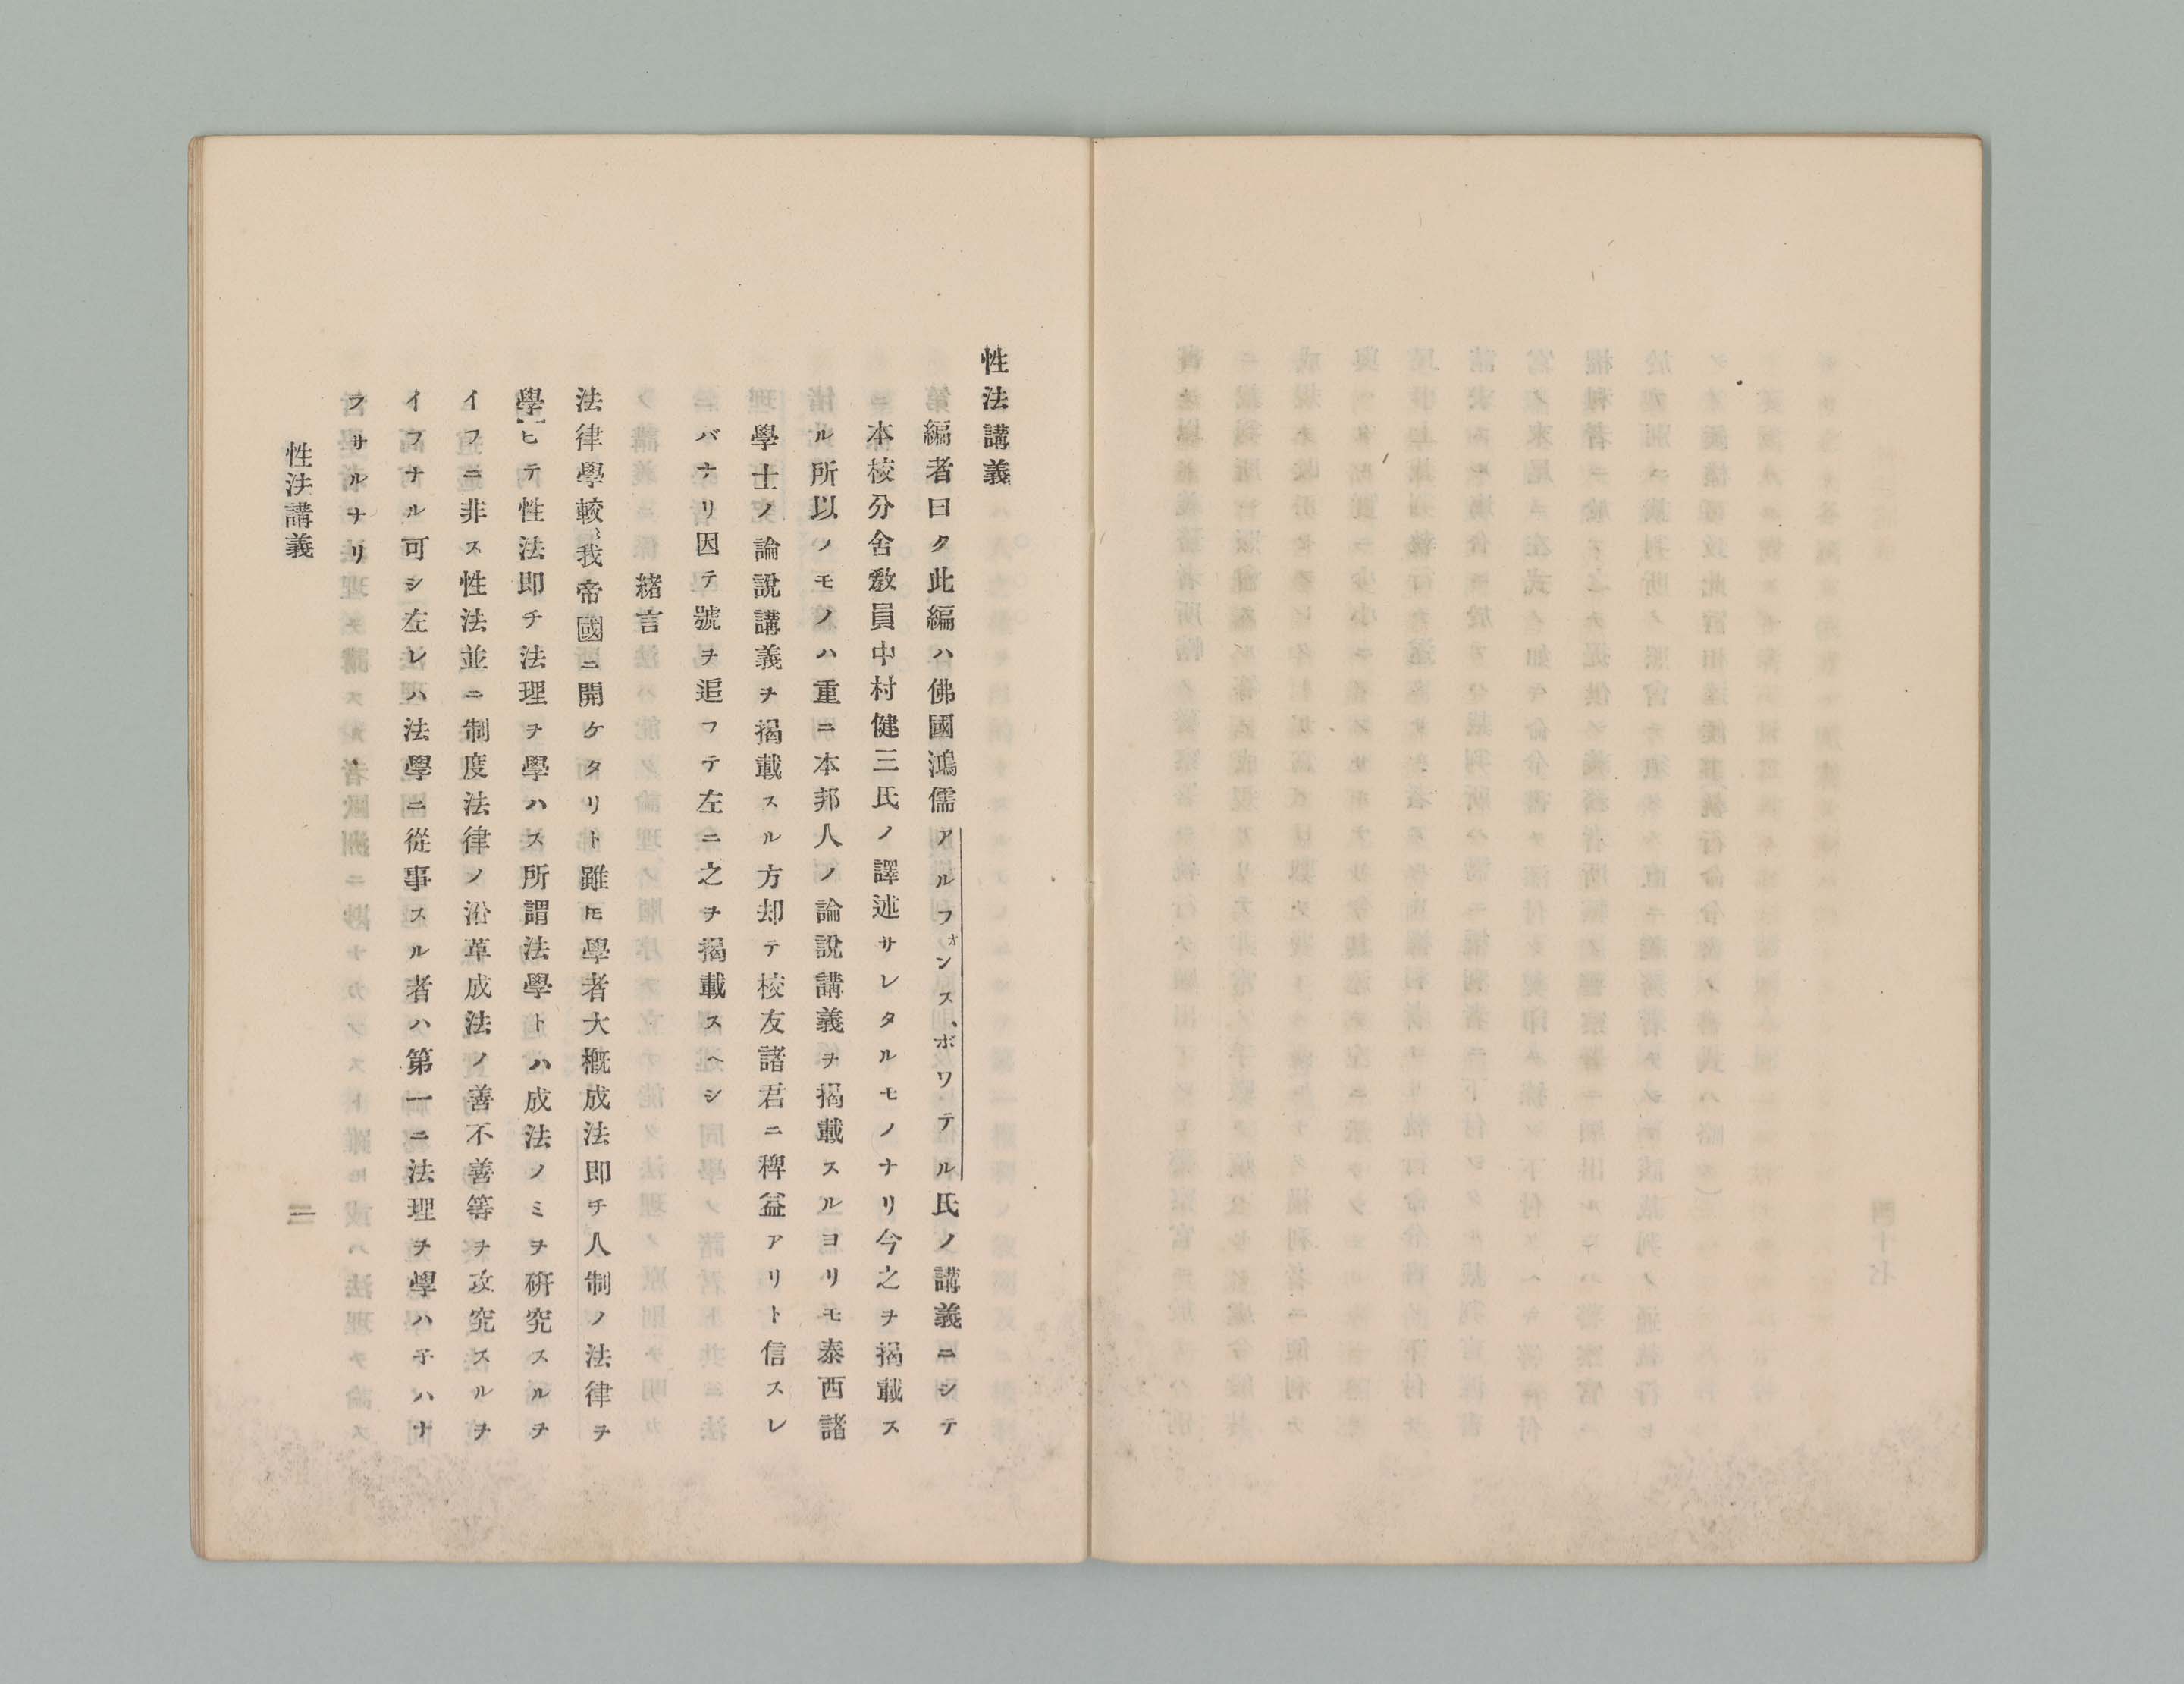 性法講義
編者曰タ此編ハ佛國鴻儒アルフォンス、ボワテル氏ノ講義ニシテ
本校分舍敎員中村健三氏ノ譯述サレタルモノナリ今之ヲ揭載ス
ル所以ノモノハ重ニ本邦人ノ論說講義ヲ揭載スルヨリモ泰西諸
學士ノ論說講義ヲ揭載スル方却テ校友諸君ニ稗益アリト信スレ
バナリ因テ號ヲ追フテ左ニ之ヲ揭載スヘシ
緖言
法律學較〻我帝國ニ開ケタリト雖𪜈學者大概成法即チ人制ノ法律ヲ
學ヒテ性法即チ法理ヲ學ハス所謂法學トハ成法ノミヲ研究スルヲ
イフニ非ス性法並ニ制度法律ノ沿革成法ノ善不善等ヲ攻究スルヲ
イフナル可シ左レハ法學ニ從事スル者ハ第一ニ法理ヲ學ハ子ハナ
ラサルナリ
性法講義
一